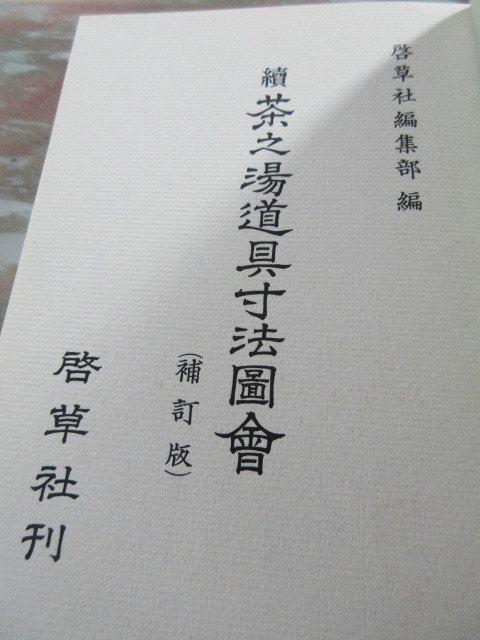 啓草社編集部 編
續 茶之湯道具寸法圖會
(補訂版)
啓草社刊